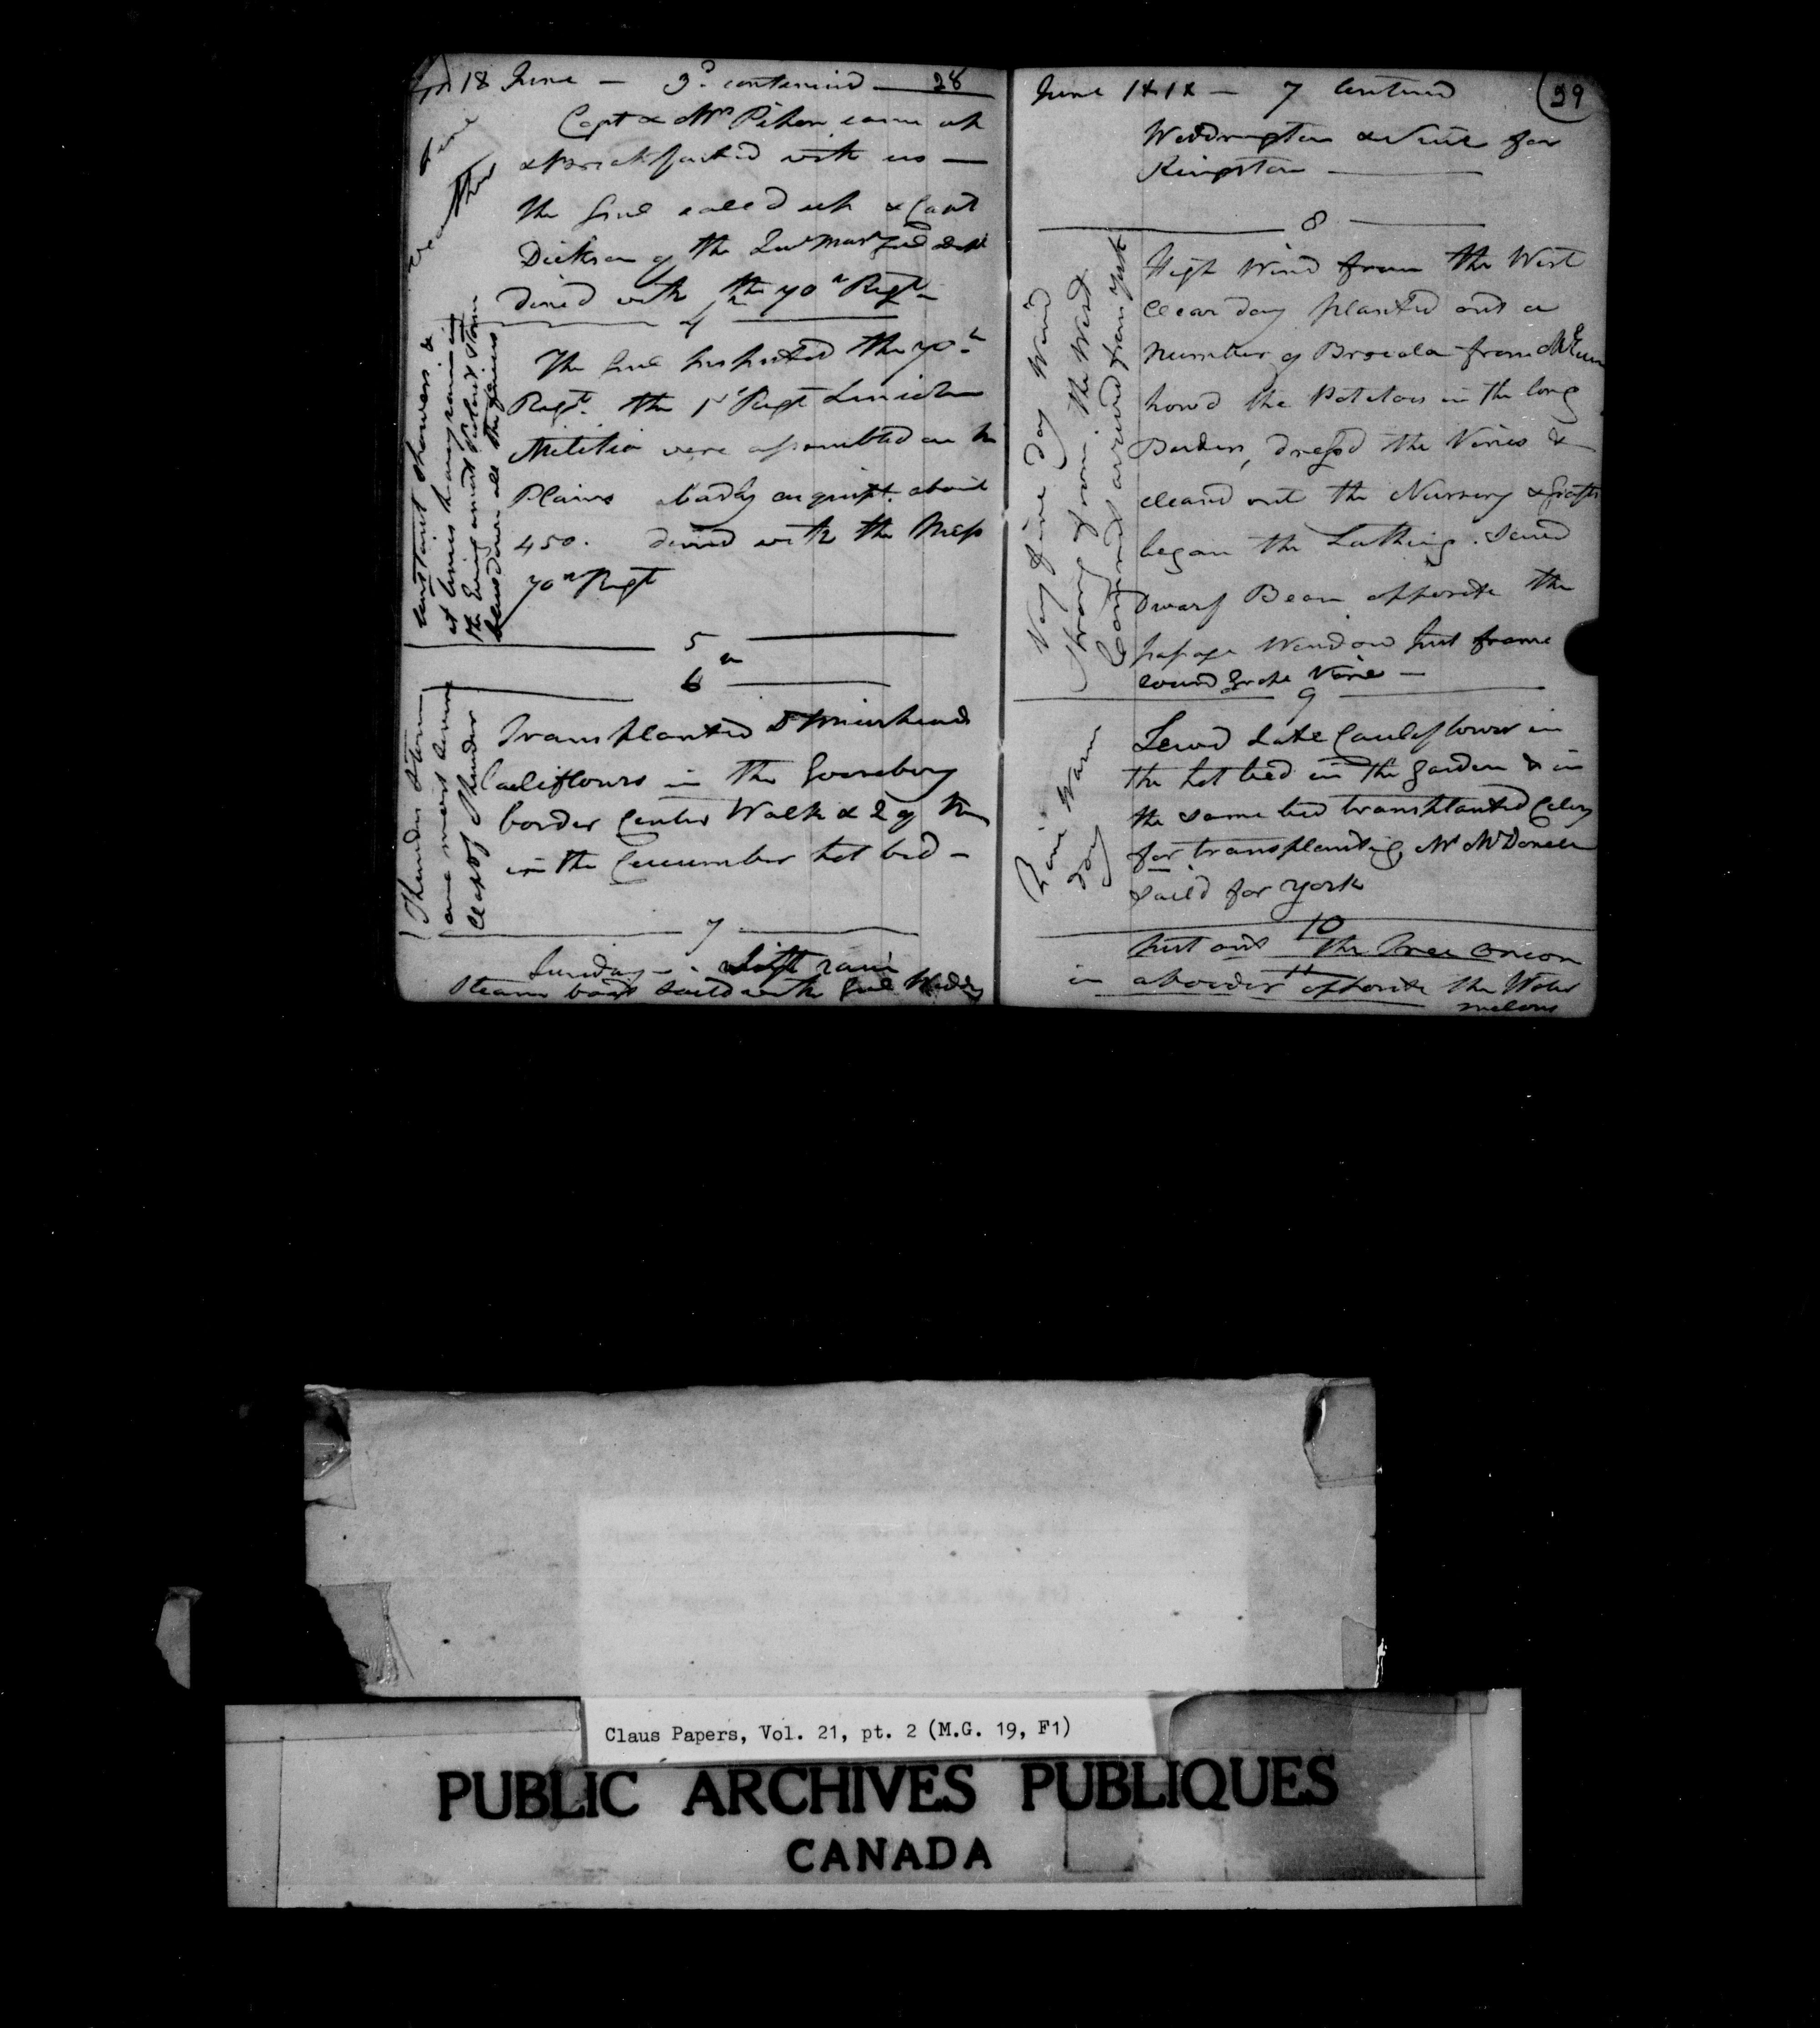 1818 June — 3d continued — 28
Fine
Weather
Capt & Mrs Pilson came up
& Breakfasted with us —
The Genl called up & Capt
Dickson of the
dined with the 70th Regt —
4
Constant showers &
at times heavy rain in
the Eving a most violent storm
blew down all the fences
The Genl Inspected the 70th
Regt. the 1st Regt Lincoln
Militia were assembled on the
Plains badly equipt. about
450. dined with the Mess
70th Regt
5
6th
Thunder storm
one most severe
Clap of Thunder
Transplanted Dr Muirheads
Cauliflours in the Goosebery
border Center Walk & 2 of them
in the Cucumber hot bed —
7
Sunday — Soft rain
Steam boat saild with Genl Widdring
June 1818 — 7 Continued
39
Widdrington & Suite for
Kingston
8
Very fine day Wind
Strong from the West
Command arrived from York
High Wind from the West
clear day planted out a
number of Brocola from McEwen
howd the Potatoes in the long
Borders, dressd the Vines &
cleand out the Nursery & Grafts
began the Lathing. Sewed
Dwarf Bean opposite the
passage Window Put frame
round Grape Vine —
9
Rain Warm
day
Sewd Late Cauliflower in
the hot bed in the Garden & in
the same bed transplanted Celery
for transplanting Mr McDonell
Saild for York
10
Put out the Tree Onion
in a border opposite the Water
11
melons
Claus Papers, Vol. 21, pt. 2 (M.G. 19, F1)
PUBLIC ARCHIVES PUBLIQUES
CANADA